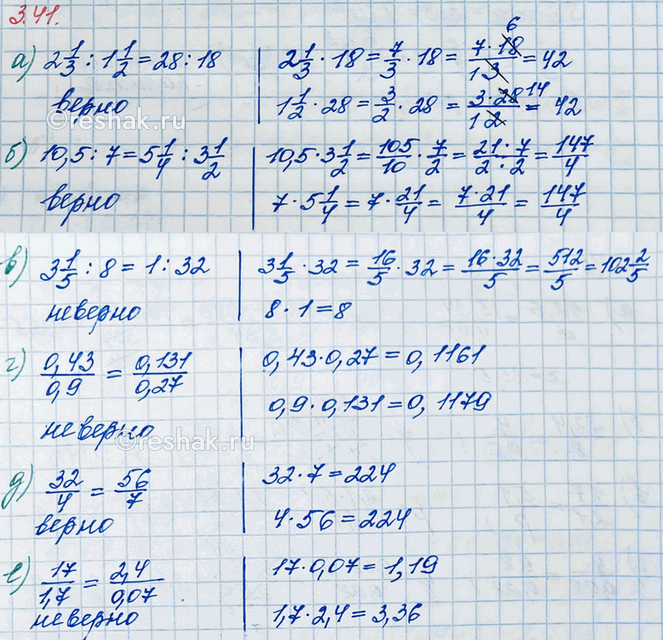 3.41.
а) 2 1/3 : 1 1/2 = 28 : 18
верно
2 1/3 · 18 = 7/3 · 18 = 7 · 18/13 = 42
6
1 1/2 · 28 = 3/2 · 28 = 3 · 28/12 = 42
14
©reshak.ru
б) 10,5 : 7 = 5 1/4 : 3 1/2
верно
10,5 · 3 1/2 = 105/10 · 7/2 = 21 · 7/2 · 2 = 147/4
7 · 5 1/4 = 7 · 21/4 = 7 · 21/4 = 147/4
в) 3 1/5 : 8 = 1 : 32
неверно
3 1/5 · 32 = 16/5 · 32 = 16 · 32/5 = 512/5 = 102 2/5
8 · 1 = 8
г) 0,43/0,9 = 0,131/0,27
неверно
0,43 · 0,27 = 0,1161
0,9 · 0,131 = 0,1179
©reshak.ru
д) 32/4 = 56/7
верно
32 · 7 = 224
4 · 56 = 224
е) 17/1,7 = 2,4/0,07
неверно
17 · 0,07 = 1,19
1,7 · 2,4 = 3,36